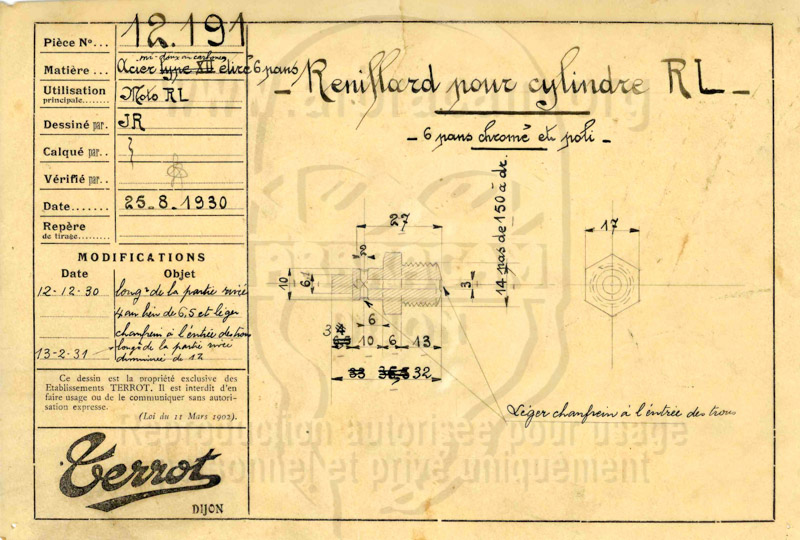 Pièce Nº... 12.191
mi-doux au carbone
Matière... Acier type XII étiré 6 pans
Utilisation principale....... Moto RL
Dessiné par. JR
Calqué par..
Vérifié par..
Date....... 25_8_1930
Repère de tirage.........
MODIFICATIONS
Date Objet
12.12.30 longr de la partie rivée
4 au lieu de 6,5 et léger
chanfrein à l'entrée des trous
13-2-31 longr de la partie rivée
diminuée de 12
Ce dessin est la propriété exclusive des
Etablissements TERROT. Il est interdit d'en
faire usage ou de le communiquer sans autori-
sation expresse.
(Loi du 11 Mars 1902).
Terrot
DIJON
_ Reniflard pour cylindre RL _
_ 6 pans chromé et poli _
27
14 pas de 150 à dr.
17
10
6
3
1
6
3
10
6
13
33
36,5
32
Léger chanfrein à l'entrée des trous
Reproduction autorisée pour usage
personnel et privé uniquement